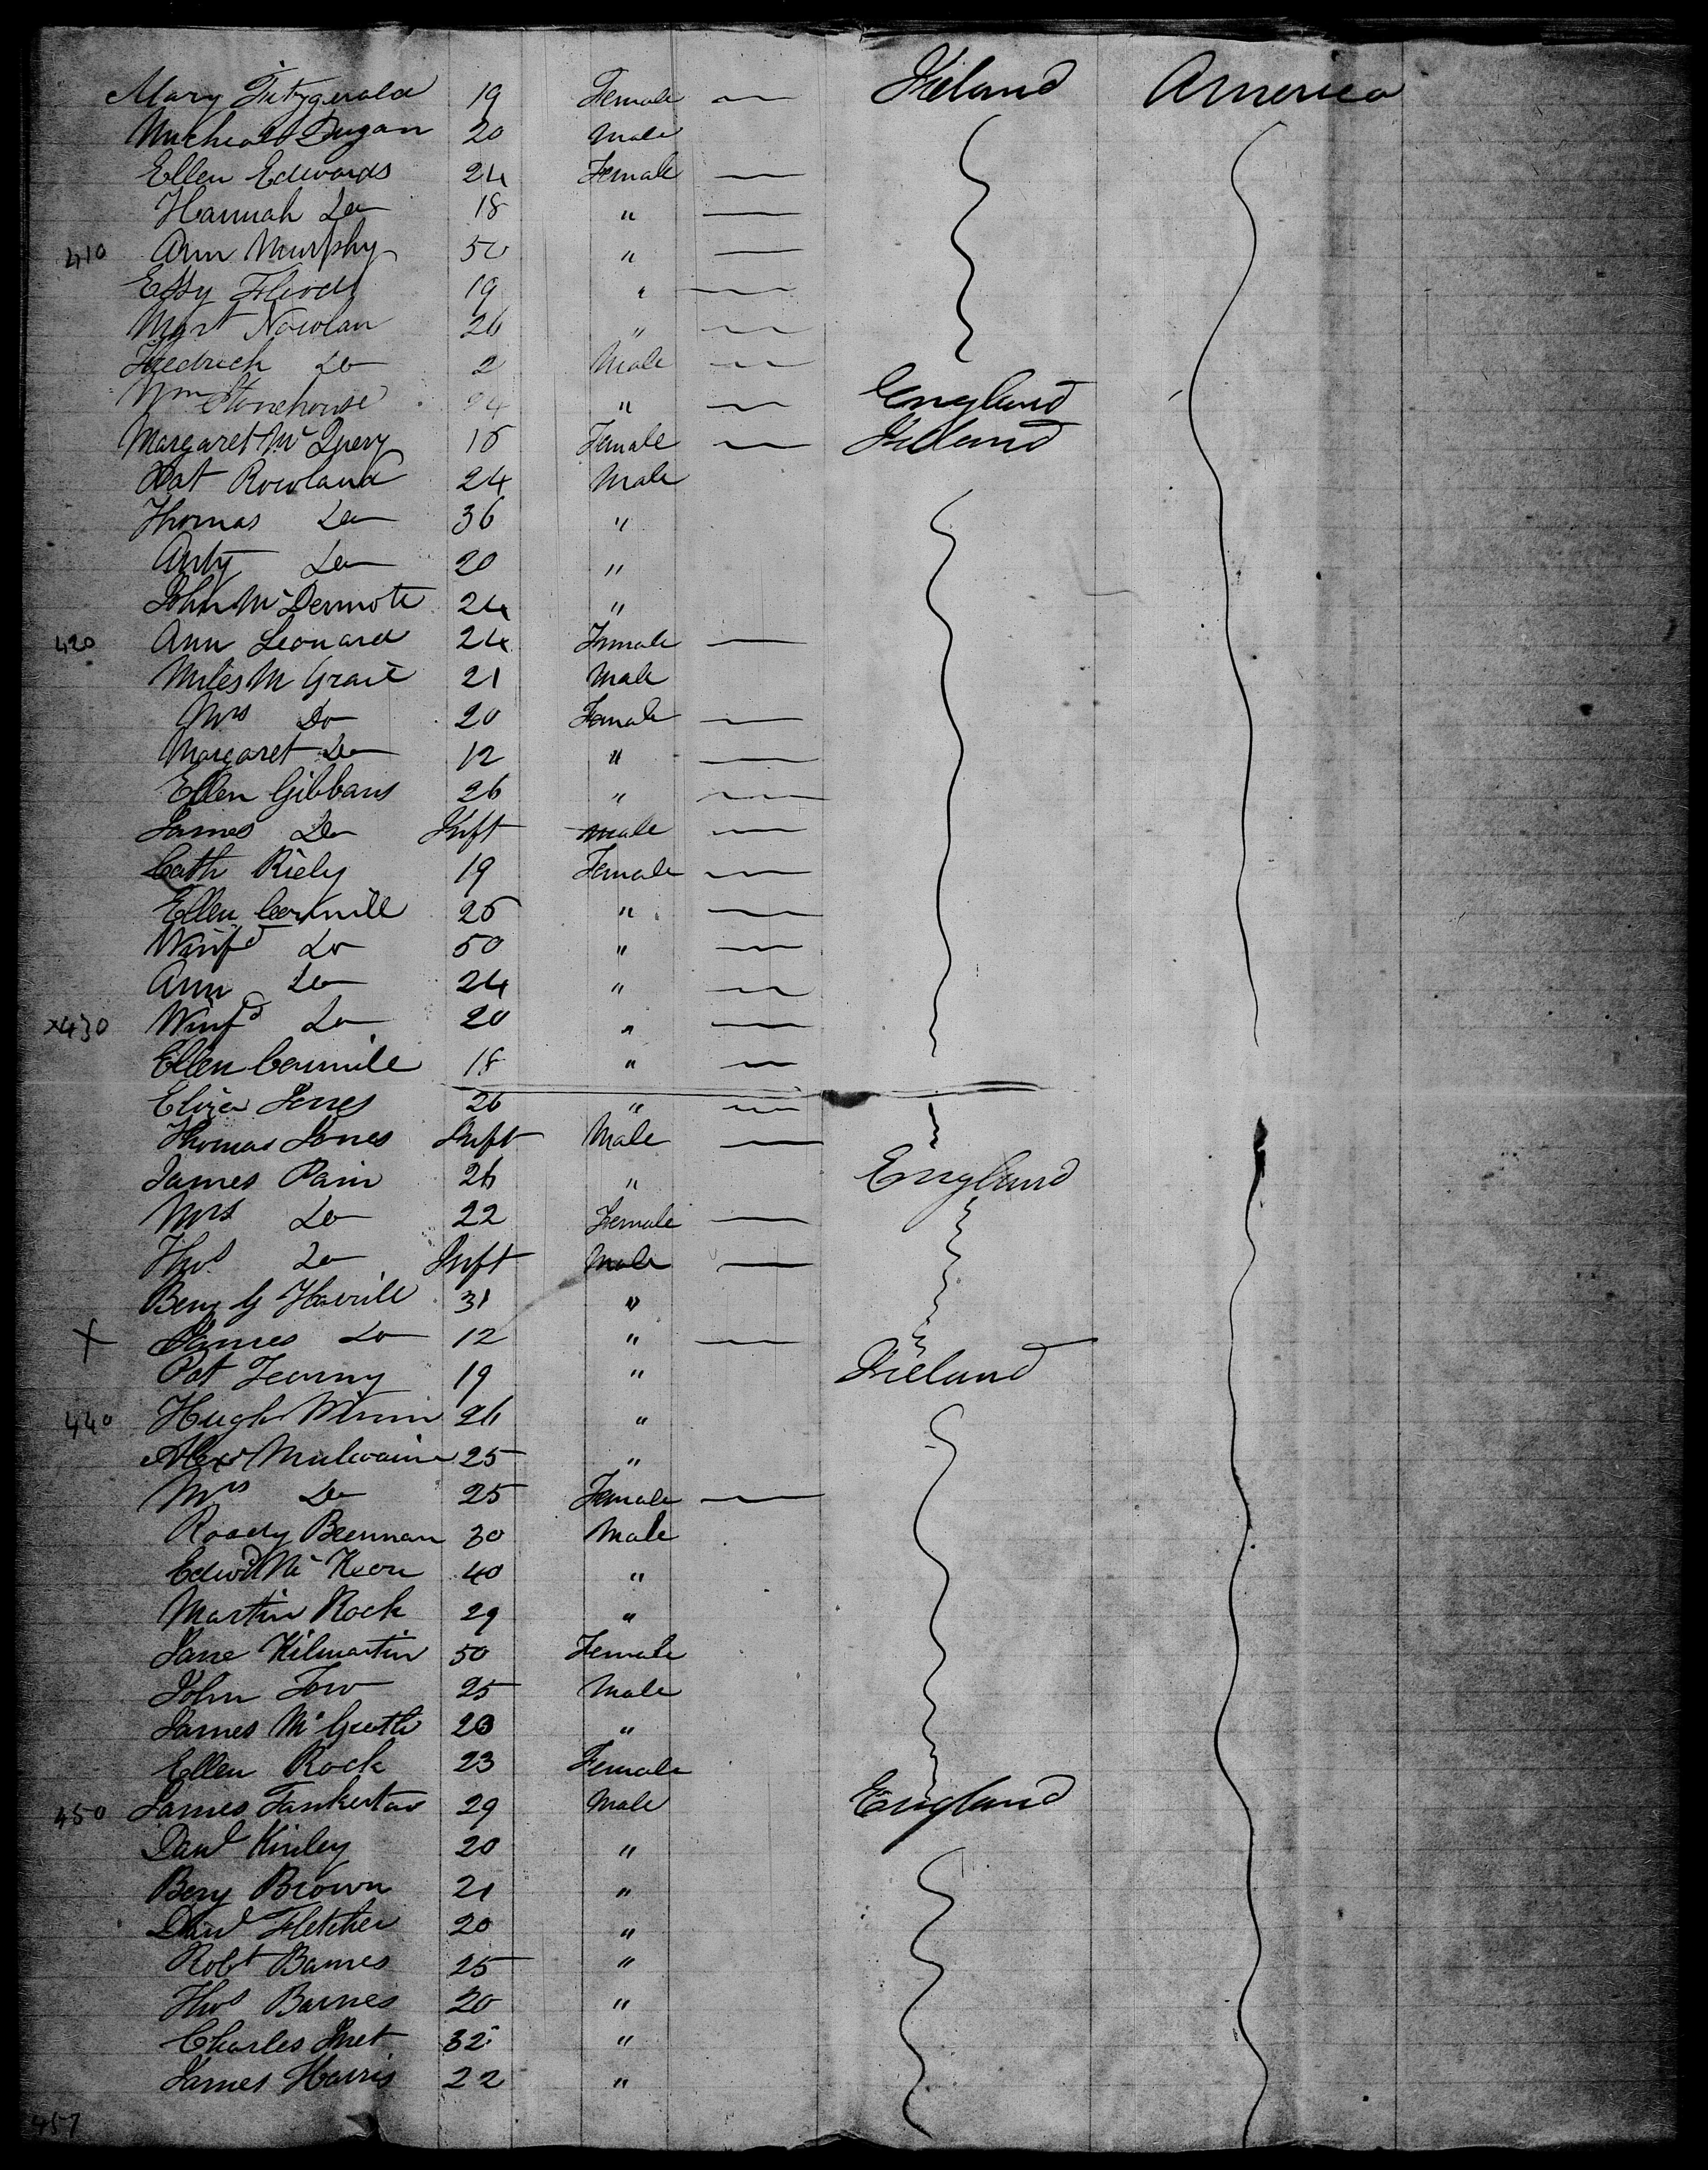 Mary Fitzgerald 19 Female — Ireland America
Micheal Dugan 20 Male
Ellen Edwards 24 Female —
Hannah Do 18 " —
410 Ann Murphy 50 " —
Essy 19 " —
Mart Nowlan 26 " —
Fredrick Do 2 Male —
Wm Stonehouse 24 " — England
Margaret Mc Query 15 Female — Ireland
Pat Rowland 24 Male
Thomas Do 36 "
Anty Do 20 "
John Mc Dermott 24 "
420 Ann Leonard 24 Female —
Miles M Grait 21 Male
Mrs Do 20 Female —
Margaret Do 12 " —
Ellen Gibbans 26 " —
James Do Inft Male —
Cath Riely 19 Female —
Ellen 25 " —
Winfd Do 50 " —
Ann Do 24 " —
x430 Winfd Do 20 " —
Ellen 18 " —
Eliza Jones 26 " —
Thomas Jones Inft Male —
James Pain 26 " England
Mrs Do 22 Female —
Thos Do Inft Male —
Benj G Havill 31 "
X James Do 12 " —
Pat 19 " Ireland
440 Hugh 26 "
Alexr Mulwain 25 "
Mrs Do 25 Female —
Roady Brennan 30 Male
Edwd Mc Keon 40 "
Martin Rock 29 "
Jane Kilmartin 50 Female
John Tow 25 Male
James Mc 20 "
Ellen Rock 23 Female
450 James Tankertar 29 Male England
Danl Kinley 20 "
Benj Brown 21 "
Danl Fletcher 20 "
Robt Barnes 25 "
Thos Barnes 20 "
Charles 32 "
James Harris 22 "
457